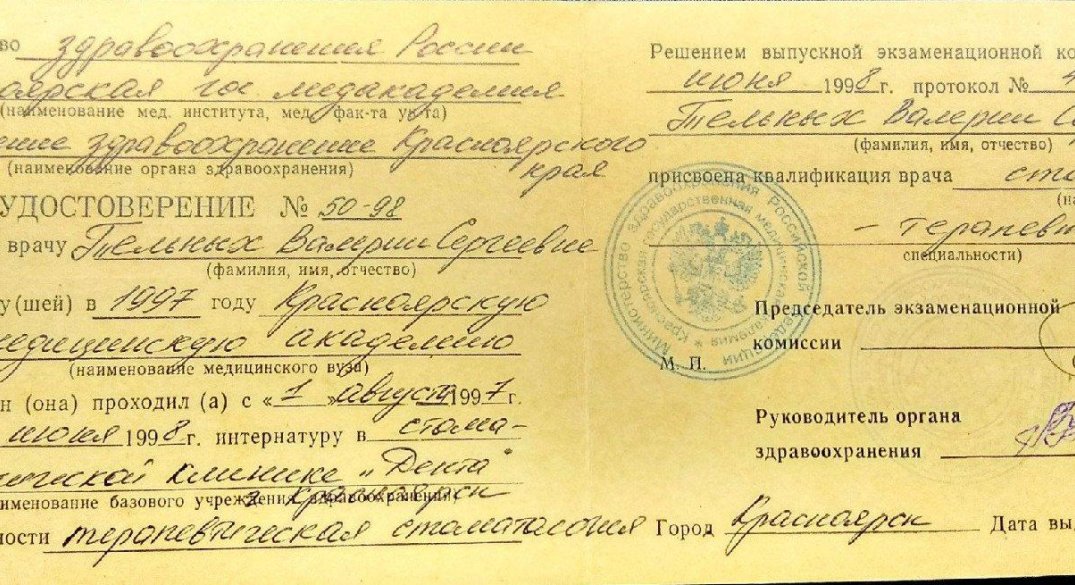 во здравоохранения России
оярская гос. медакадемия
(наименование мед. института, мед. фак-та ун-та)
ение здравоохранение Красноярского
края
(наименование органа здравоохранения)
УДОСТОВЕРЕНИЕ № 50-98
врачу Тельных Валерии Сергеевне
(фамилия, имя, отчество)
у(шей) в 1997 году Красноярскую
медицинскую академию
(наименование медицинского вуза)
н (она) проходил (а) с «1» августа 1997 г.
июня 1998 г. интернатуру в стома-
ической клинике „Дента"
именование базового учреждения здравоохранения)
г Красноярск
ности терапевтическая стоматология
Решением выпускной экзаменационной ко
июня 1998 г. протокол № 4
Тельных Валерии Се
(фамилия, имя, отчество)
присвоена квалификация врача сто
(на
- терапевт
специальности)
Министерство здравоохранения Российской Федерации
Красноярская государственная медицинская академия
Председатель экзаменационной
комиссии
М. П.
Руководитель органа
здравоохранения
Город Красноярск Дата вы